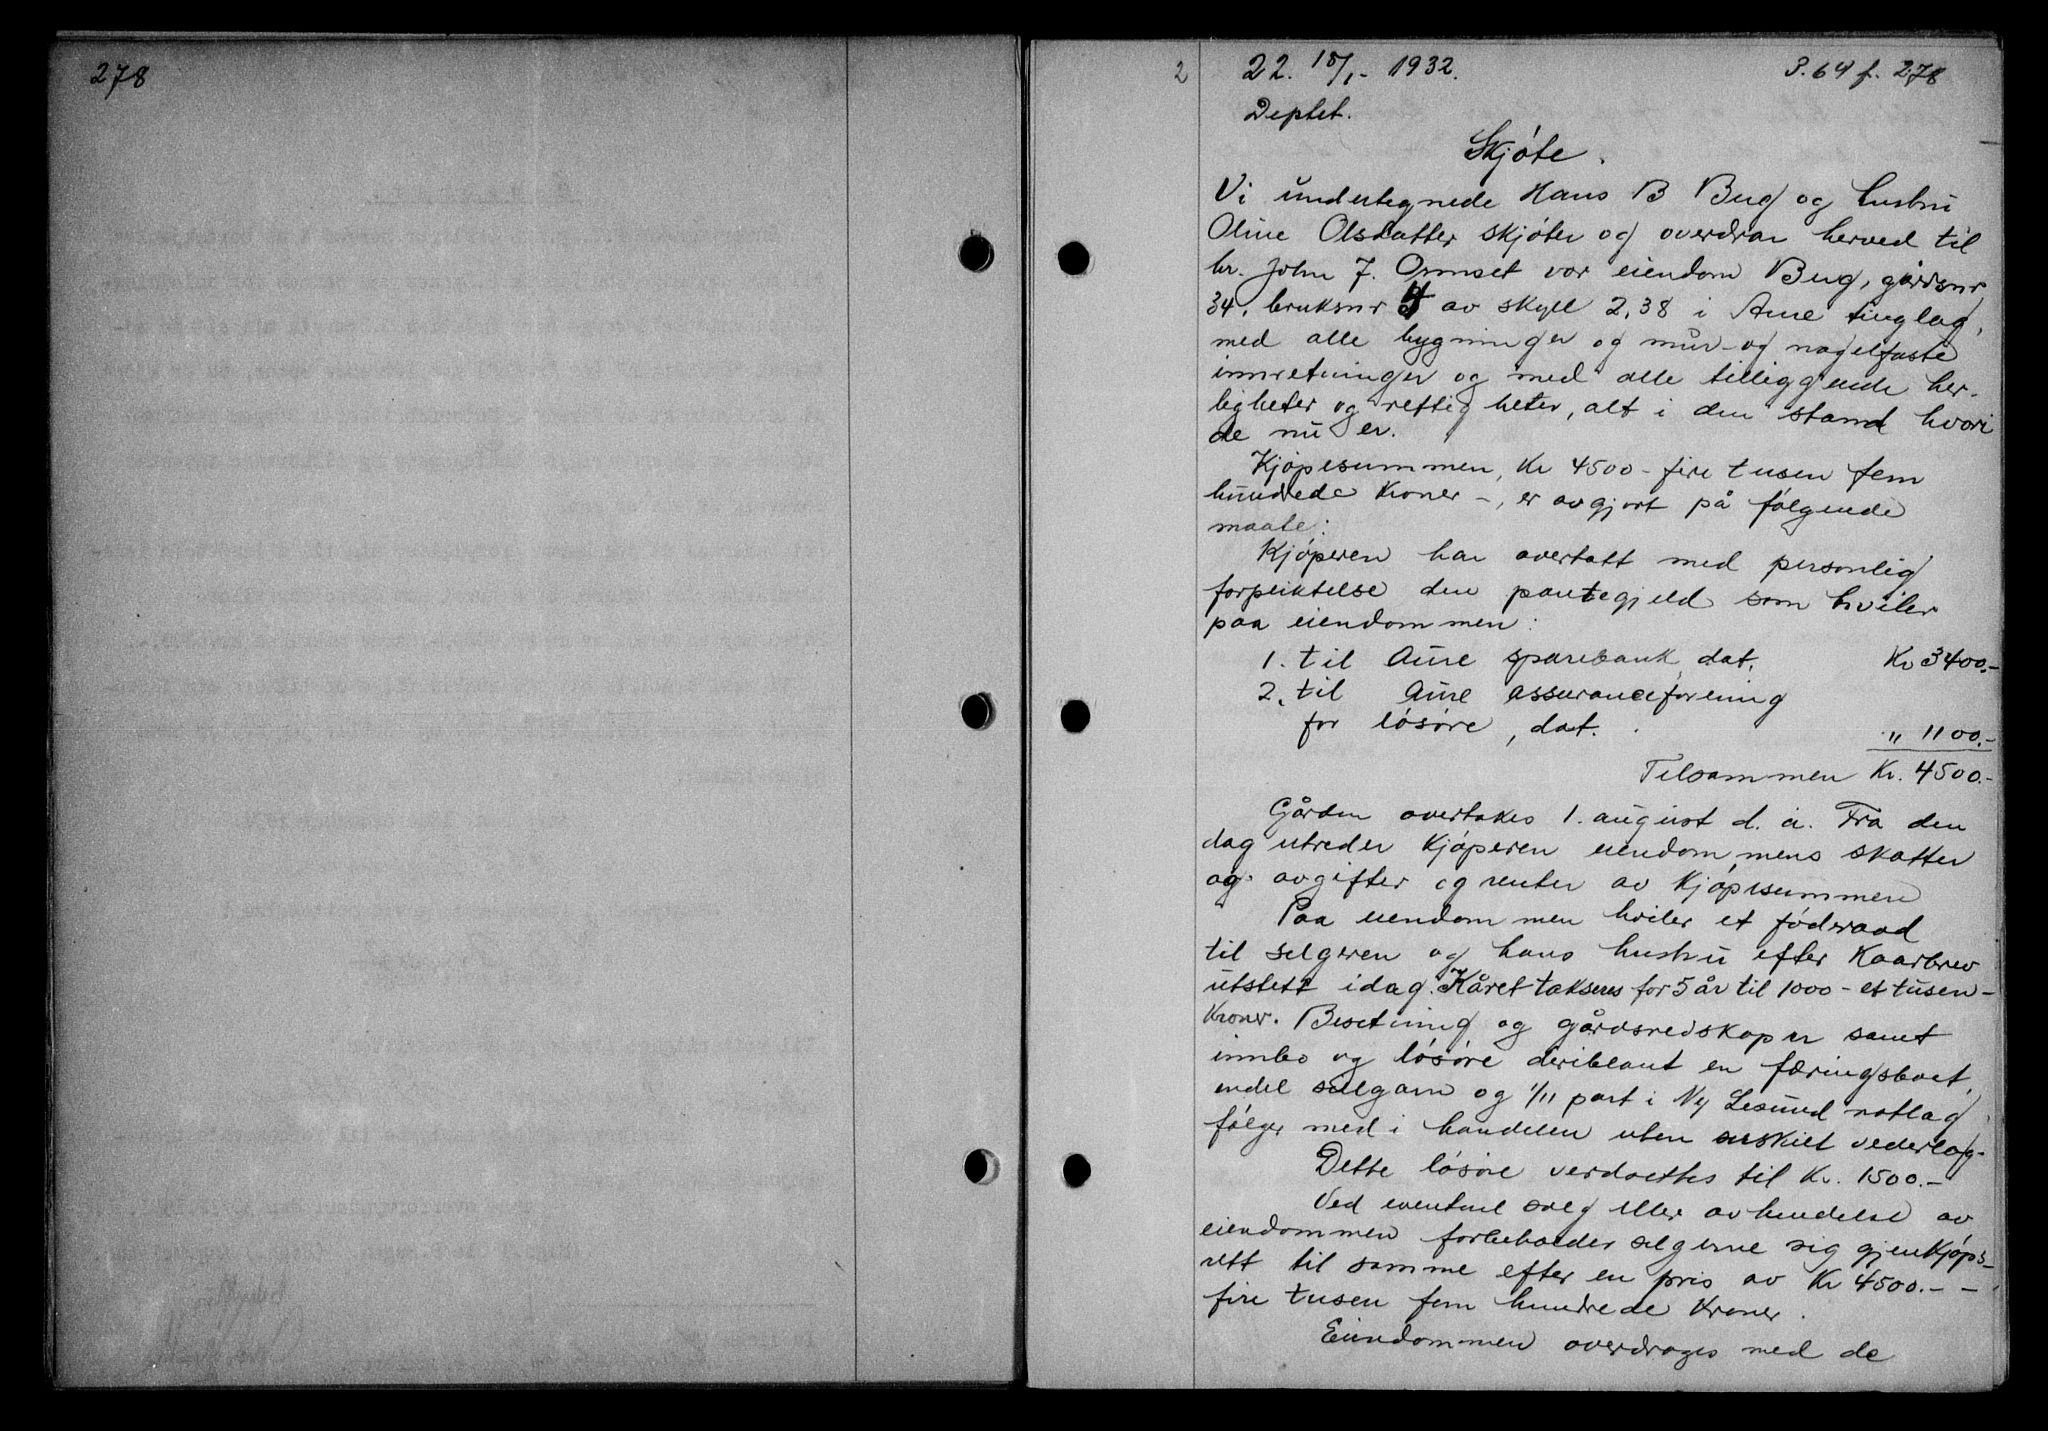 278
2
22. 18/1- 1932. 3. 64 f. 278
Deptet.
Skjöte.
Vi undertegnede Hans B Bug og hustru
Oline Olsdatter skjöter og overdrar herved til
hr. John J. Ormset vor eiendom Bug, gårdsnr
34, bruksnr 4 av skyll 2,38 i Aure tinglag,
med alle bygninger og mur- og nagelfaste
innretninger og med alle tilliggende her-
ligheter og rettigheter, alt i den stand hvori
de nu er.
Kjöpesummen, Kr 4500 - fire tusen fem
hundrede Kroner -, er avgjort på fölgende
maate:
Kjöperen har overtatt med personlig
forpliktelse den pantegjeld som hviler
paa eiendommen:
1. til Aure sparebank, dat. Kr 3400.-
2. til Aure assuranceforening
for lösöre, dat. " 1100.-
Tilsammen Kr. 4500.-
Gården overtakes 1. august d. å. Fra den
dag utreder Kjöperen eiendommens skatter
og avgifter og renter av Kjöpesummen
Paa eiendommen hviler et föderaad
til selgeren og hans hustru efter Kaarbrev
utstett idag. Kåret takseres for 5 år til 1000 - et tusen -
Kroner. Besetning og gårdsredskaper samt
innbo og lösöre deriblant en færingsbaat,
endel seigarn og 1/11 part i Ny Lesund notlag
fölger med i handelen uten særskilt vederlag.
Dette lösöre verdsettes til Kr. 1500.-
Ved eventuel salg eller avhendelse av
eiendommen forbeholder selgerne sig gjenkjöps-
rett til samme efter en pris av Kr 4500.- -
fire tusen fem hundrede Kroner.
Eiendommen overdrages med de